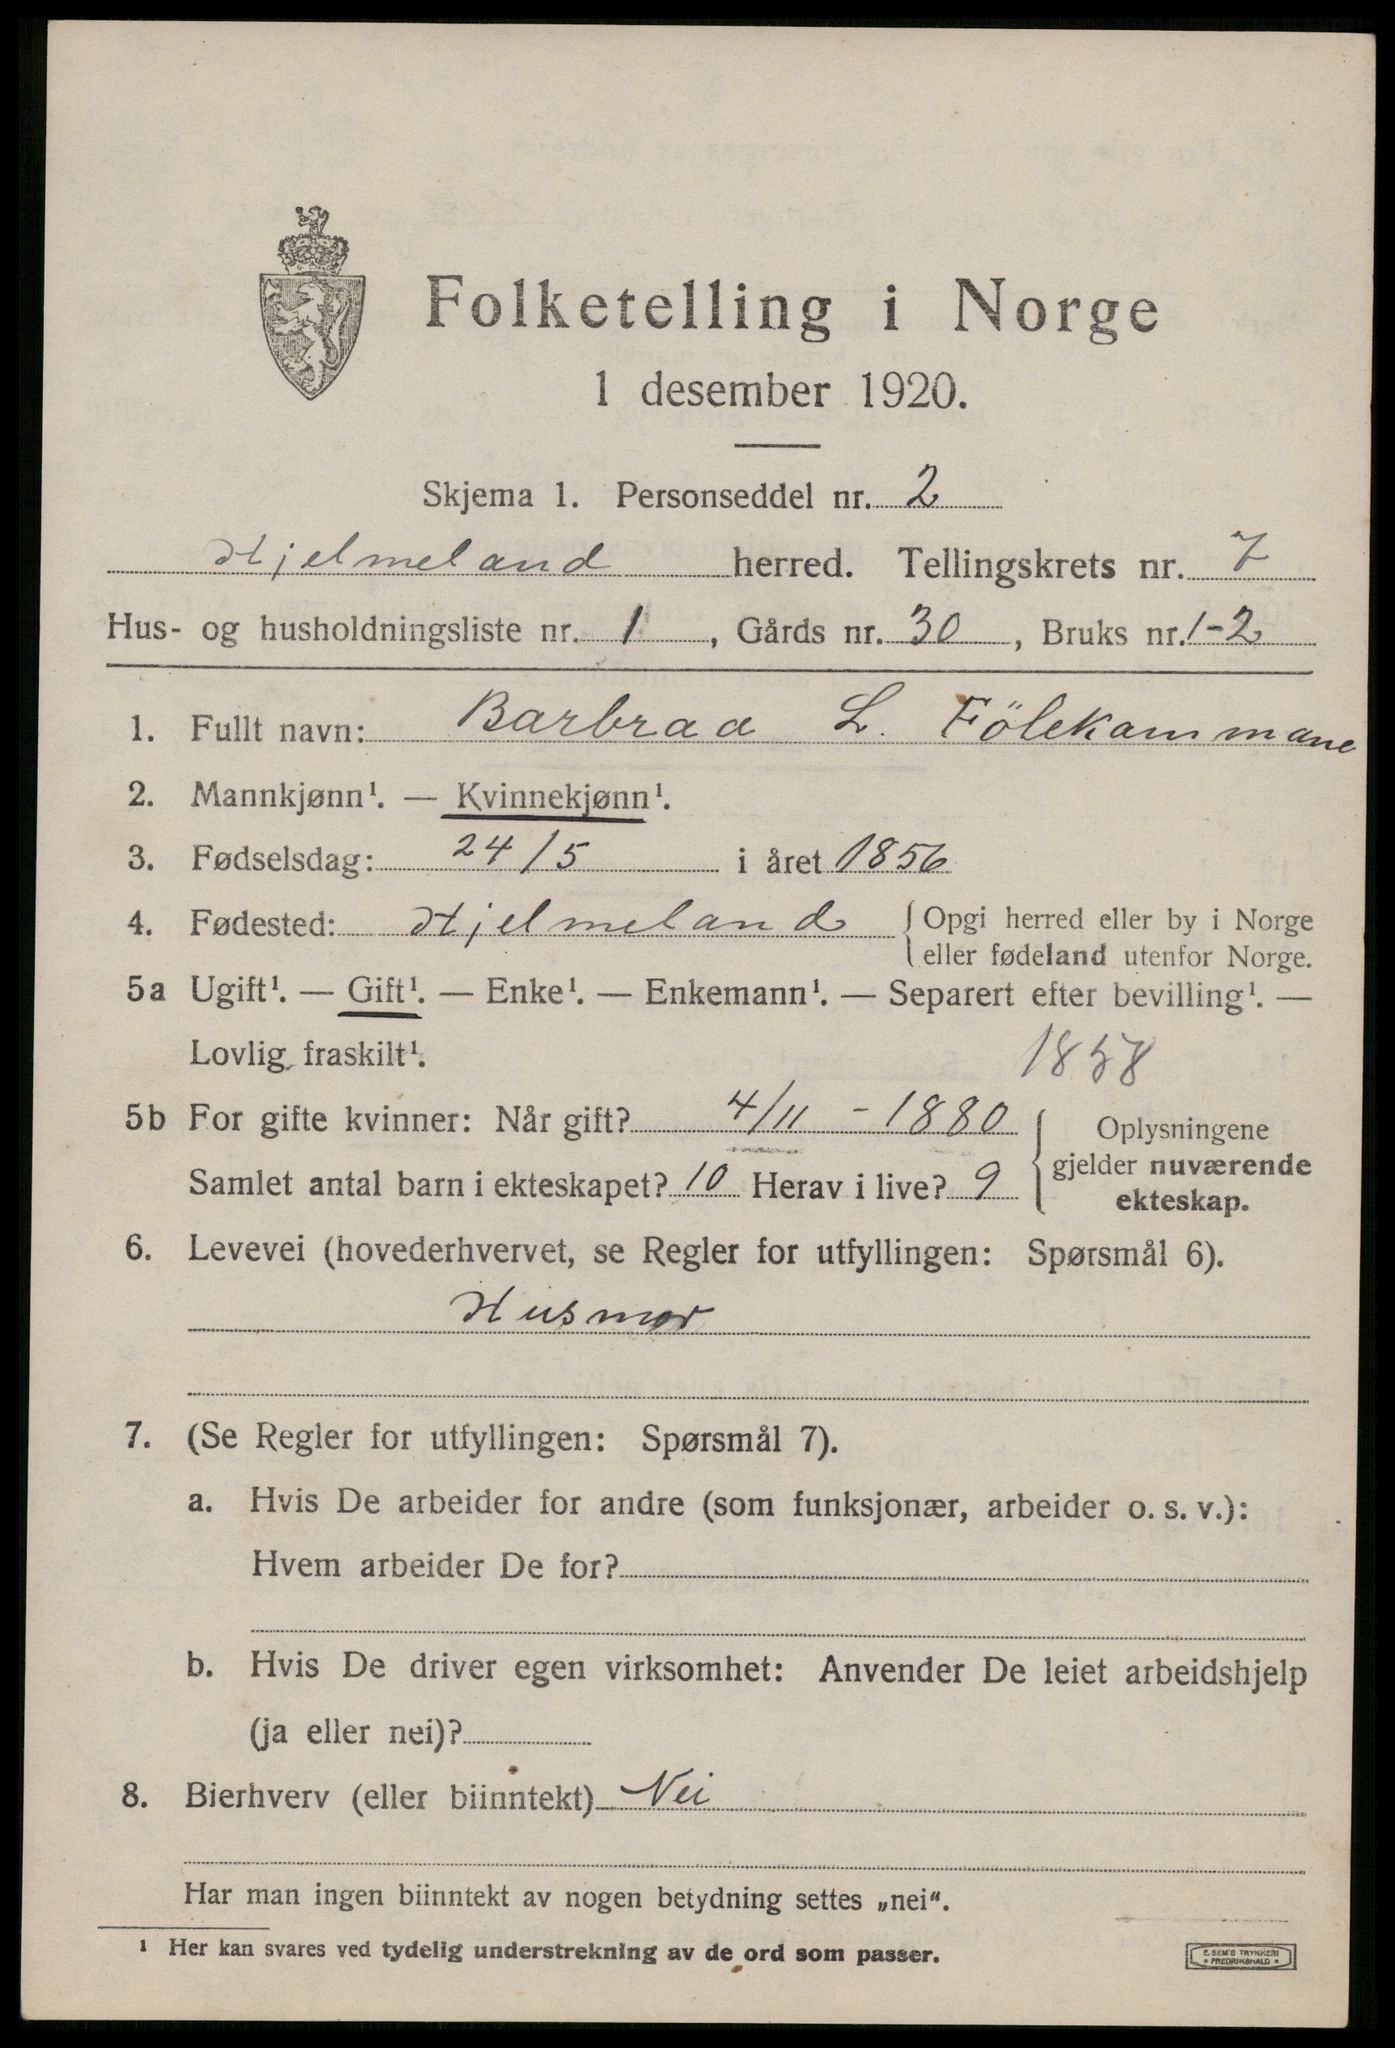 Folketelling i Norge
1 desember 1920.
Skjema 1. Personseddel nr. 2
Hjelmeland herred. Tellingskrets nr. 7
Hus- og husholdningsliste nr. 1, Gårds nr. 30, Bruks nr. 1-2
1. Fullt navn: Barbraa L. Fölekammane
2. Mannkjønn¹. — Kvinnekjønn¹.
3. Fødselsdag: 24/5 i året 1856
4. Fødested: Hjelmeland { Opgi herred eller by i Norge
eller fødeland utenfor Norge.
5a Ugift¹. — Gift¹. — Enke¹. — Enkemann¹. — Separert efter bevilling¹. —
Lovlig fraskilt¹. 1858
5b For gifte kvinner: Når gift? 4/11 - 1880 Oplysningene
gjelder nuværende
Samlet antal barn i ekteskapet? 10 Herav i live? 9 ekteskap.
6. Levevei (hovederhvervet, se Regler for utfyllingen: Spørsmål 6).
Husmor
7. (Se Regler for utfyllingen: Spørsmål 7).
a. Hvis De arbeider for andre (som funksjonær, arbeider o. s. v.):
Hvem arbeider De for?
b. Hvis De driver egen virksomhet: Anvender De leiet arbeidshjelp
(ja eller nei)?
8. Bierhverv (eller biinntekt) Nei
Har man ingen biinntekt av nogen betydning settes „nei“.
¹ Her kan svares ved tydelig understrekning av de ord som passer.
E. SEM'S TRYKKERI
FREDRIKSHALD